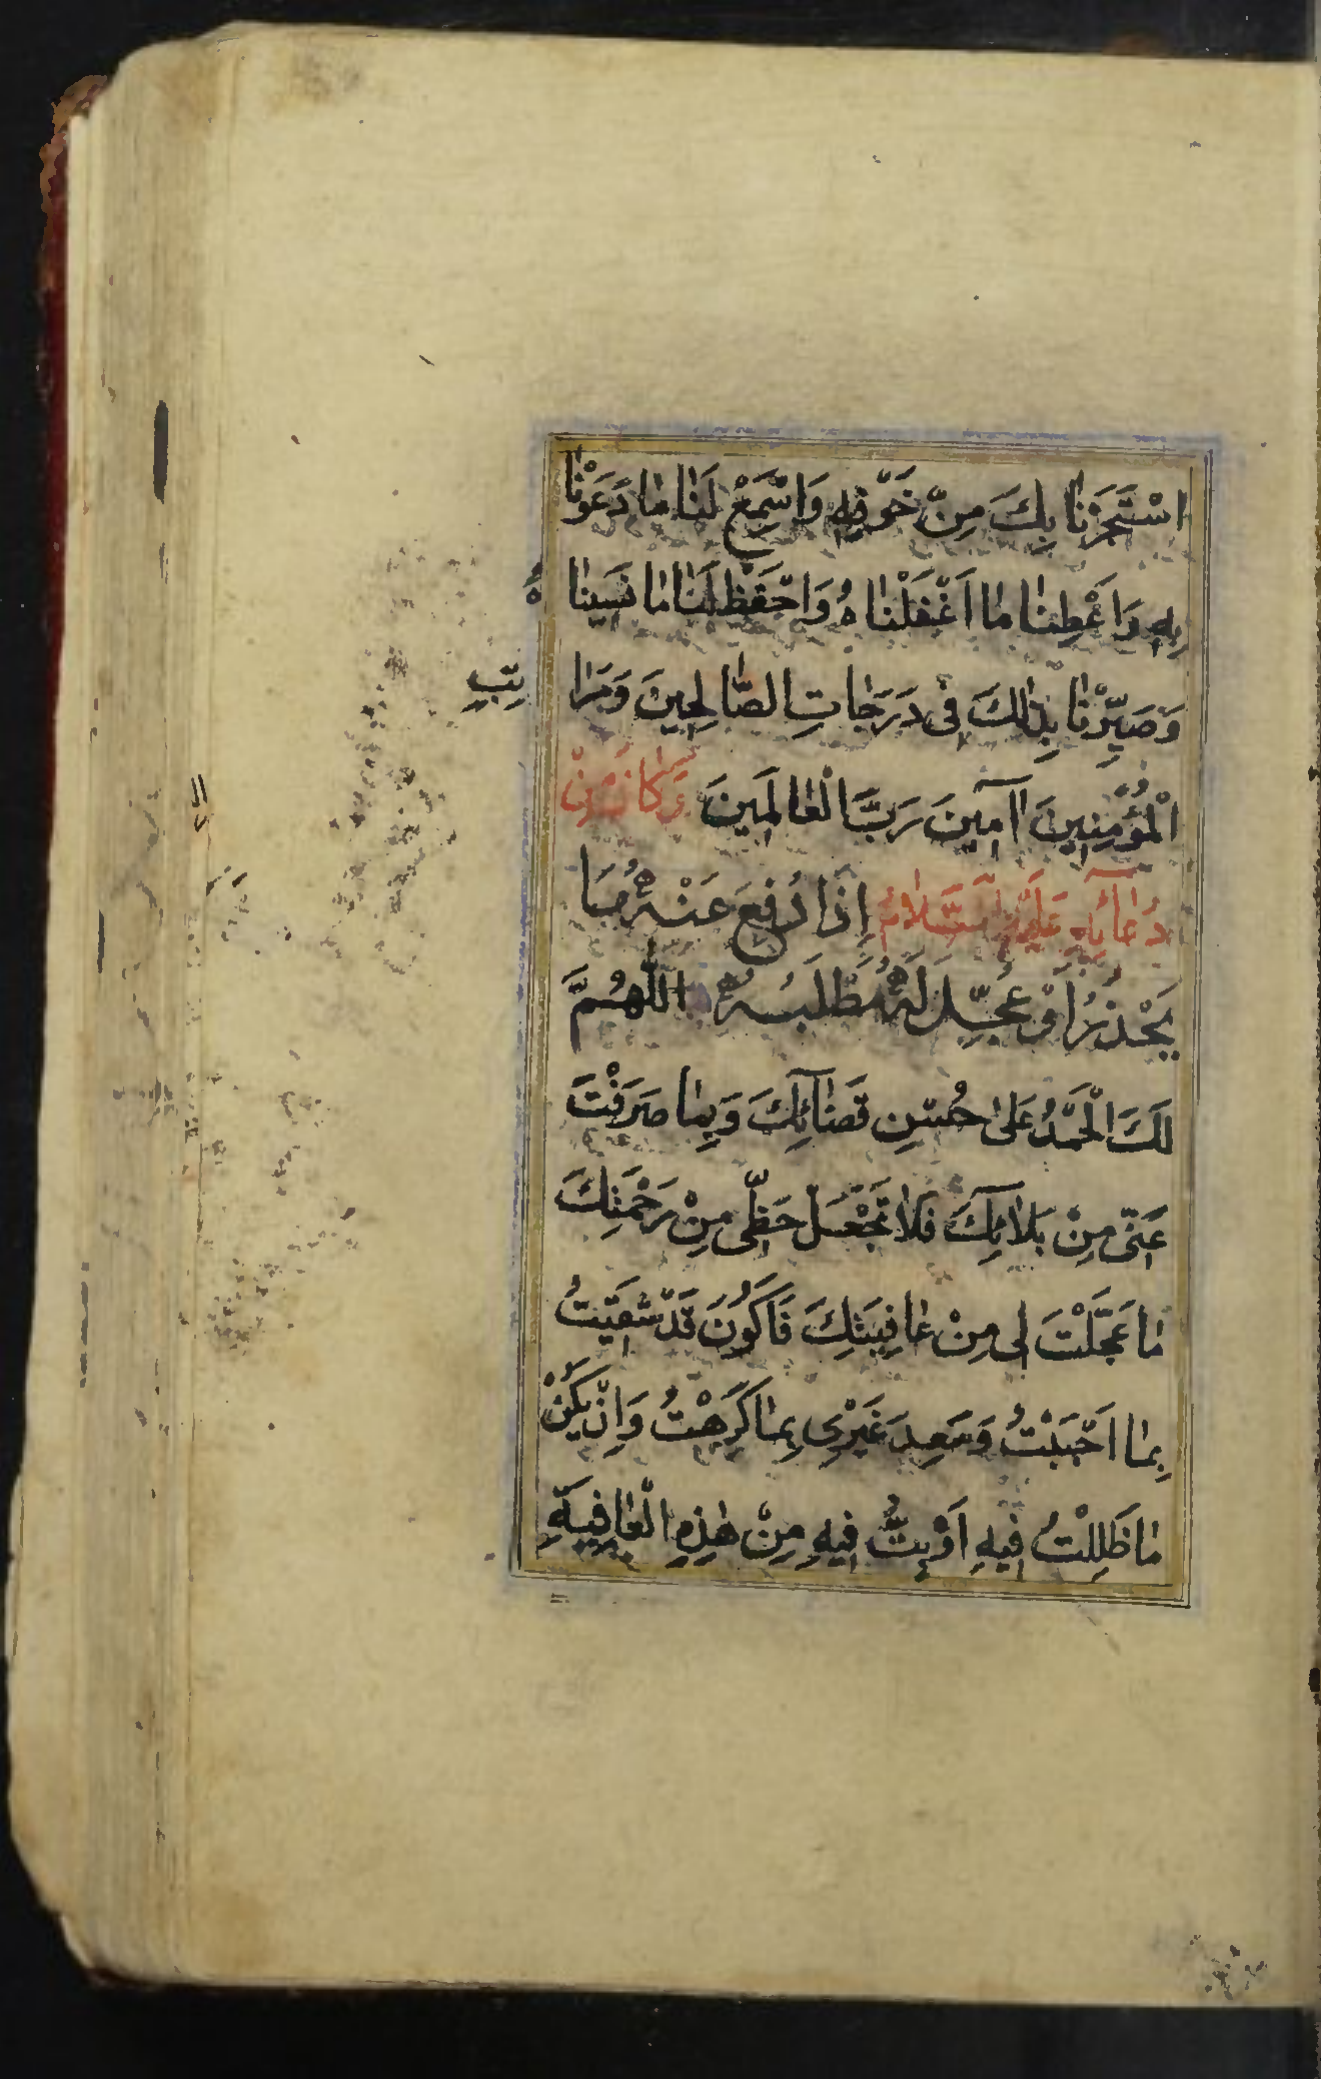 اسْتَجَرْنَا بِكَ مِنْ خَوْفِهِ وَاسْمَعْ لَنَا مَا دَعَوْنَا
بِهِ وَاَعْطِنَا مَا اَغْفَلْنَاهُ وَاحْفَظْ لَنَا مَا نَسِينَاهُ
وَصَيِّرْنَا بِذٰلِكَ فِى دَرَجَاتِ الصَّالِحِينَ وَمَرَاتِبِ
الْمُؤْمِنِينَ اٰمِينَ رَبَّ الْعَالَمِينَ وَكَانَ مِنْ
دُعَآئِهِ عَلَيْهِ السَّلَامُ اِذَا دُفِعَ عَنْهُ مَا
يَحْذَرُ اَوْ عُجِّلَ لَهُ مَطْلَبُهُ اَللّٰهُمَّ
لَكَ الْحَمْدُ عَلَى حُسْنِ قَضَآئِكَ وَبِمَا صَرَفْتَ
عَنِّى مِنْ بَلَآئِكَ فَلَا تَجْعَلْ حَظِّى مِنْ رَحْمَتِكَ
مَا عَجَّلْتَ لِى مِنْ عَافِيَتِكَ فَاَكُونَ قَدْ شَقِيتُ
بِمَا اَحْبَبْتُ وَسَعِدَ غَيْرِى بِمَا كَرِهْتُ وَاِنْ يَكُنْ
مَا ظَلِلْتُ فِيهِ اَوْ بِتُّ فِيهِ مِنْ هٰذِهِ الْعَافِيَةِ